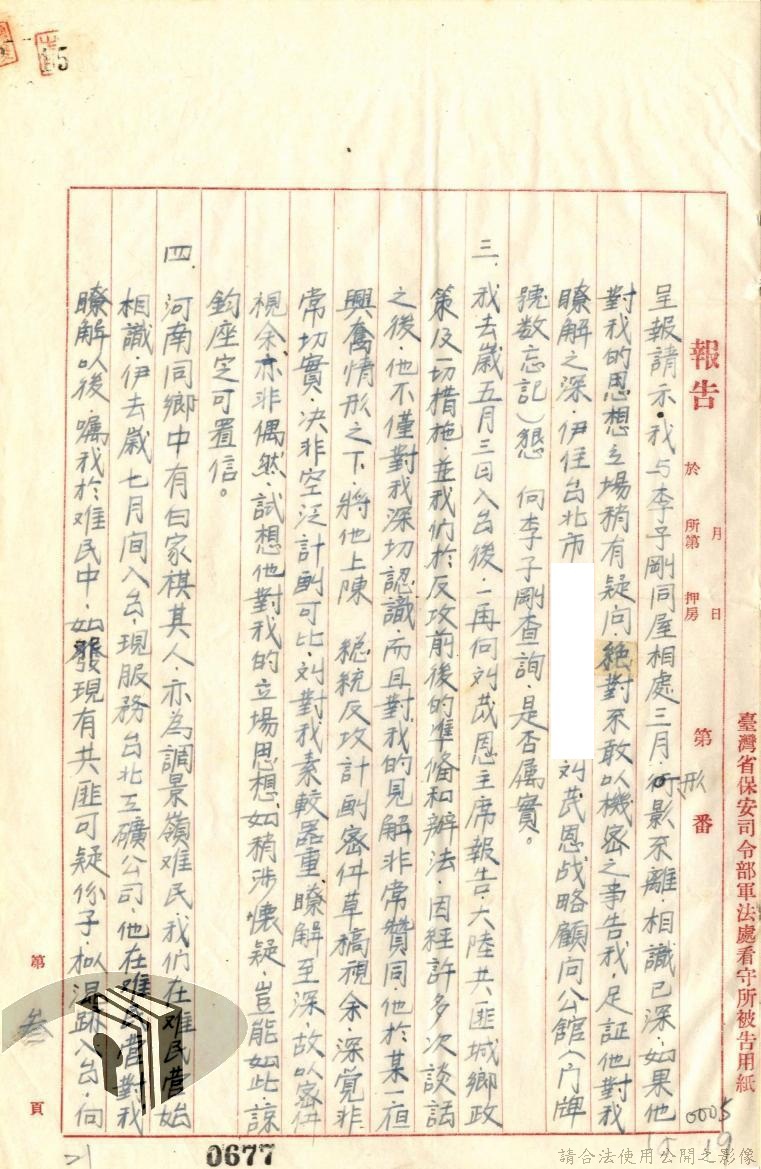 臺灣省保安司令部軍法處看守所被告用紙
報告
於 月 日
所第 押房
第 番
呈報請示。我与李子剛同屋相處三月，形影不離，相識已深，如果他
對我的思想立場稍有疑问，絕對不敢以機密之事告我，足証他對我
瞭解之深，伊住台北市 刘茂恩战略顧问公館（门牌
號数忘記）懇 向李子剛查詢，是否属實。
三、我去歲五月三日入台後，一再向刘茂恩主席報告，大陸共匪城鄉政
策及一切措施，並我们於反攻前後的準備和辦法，因経許多次談話
之後，他不僅對我深切認識，而且對我的見解非常贊同他於某一宿
興奮情形之下，將他上陳 総統反攻計劃密件草稿視余，深覚非
常切實，决非空泛計劃可比，刘對我素較器重，瞭解至深，故以密件
視余，亦非偶然，試想他對我的立場思想，如稍涉懷疑，豈能如此，諒
鈞座定可置信。
四、河南同鄉中有白家棋其人，亦為調景嶺难民，我们在难民营始
相識，伊去歲七月间入台，現服務台北工礦公司，他在难民营對我
瞭解以後，嘱我於难民中，如發現有共匪可疑份子，拟混跡入台，向
第 叁 頁
0005
15 19
21
0677
15
請合法使用公開之影像